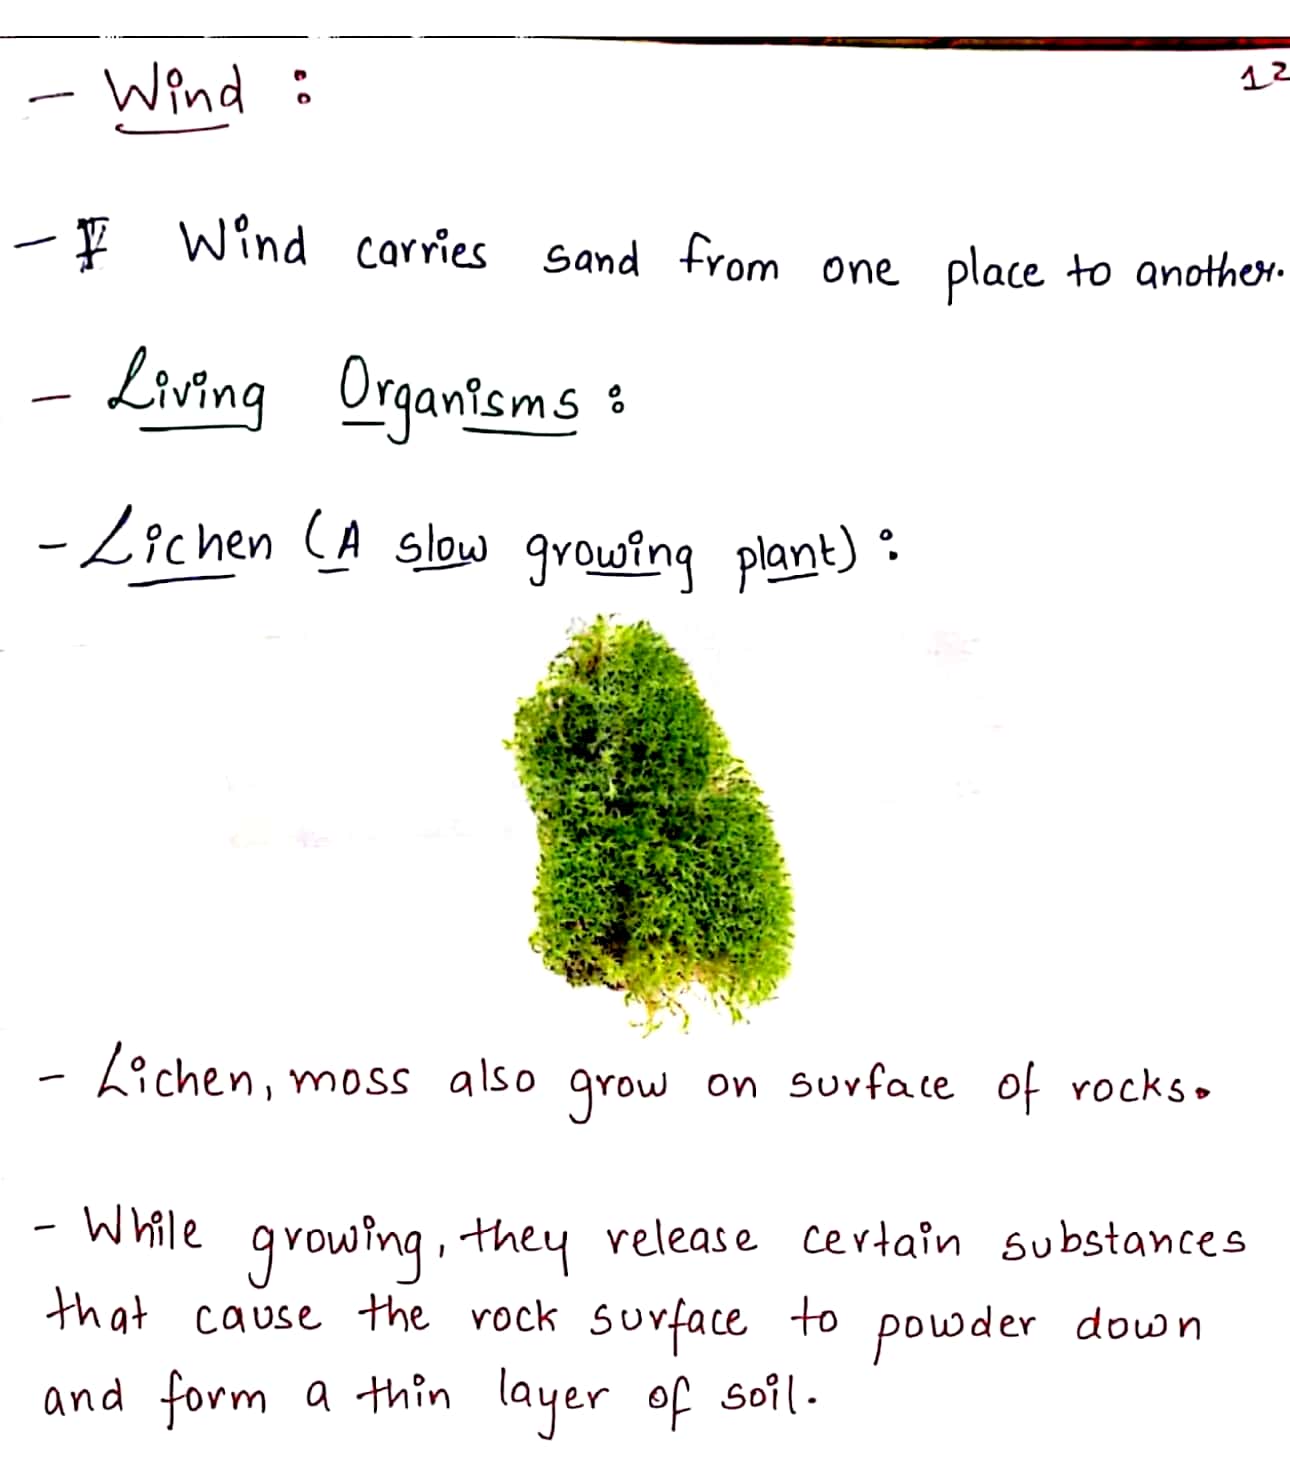 - Wind :
12
- Wind carries sand from one place to another.
- Living Organisms :
- Lichen (A slow growing plant) :
- Lichen, moss also grow on surface of rocks.
- While growing, they release certain substances
that cause the rock surface to powder down
and form a thin layer of soil.